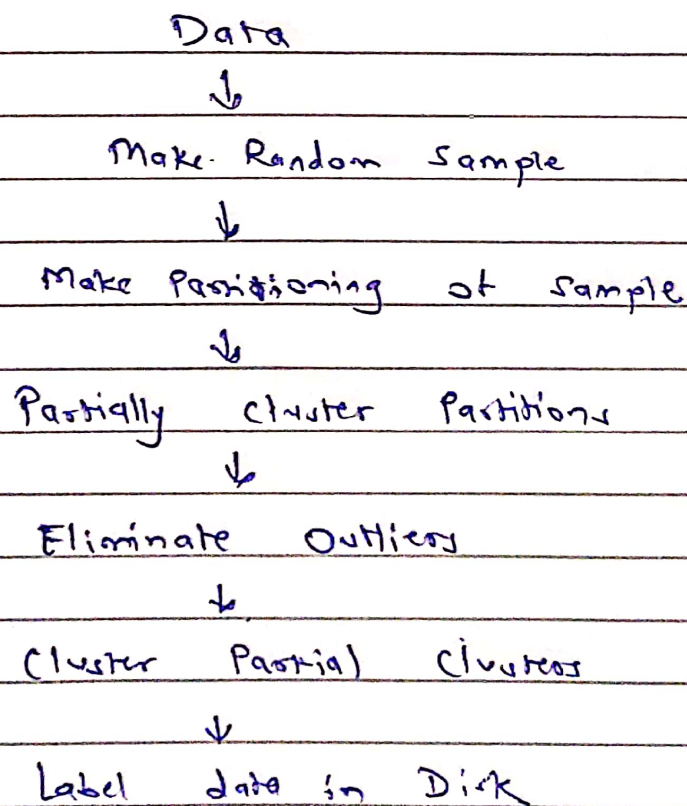 Data
↓
Make Random Sample
↓
Make Partitioning of Sample
↓
Partially Cluster Partitions
↓
Eliminate Outliers
↓
Cluster Partial Clusters
↓
Label data in Disk